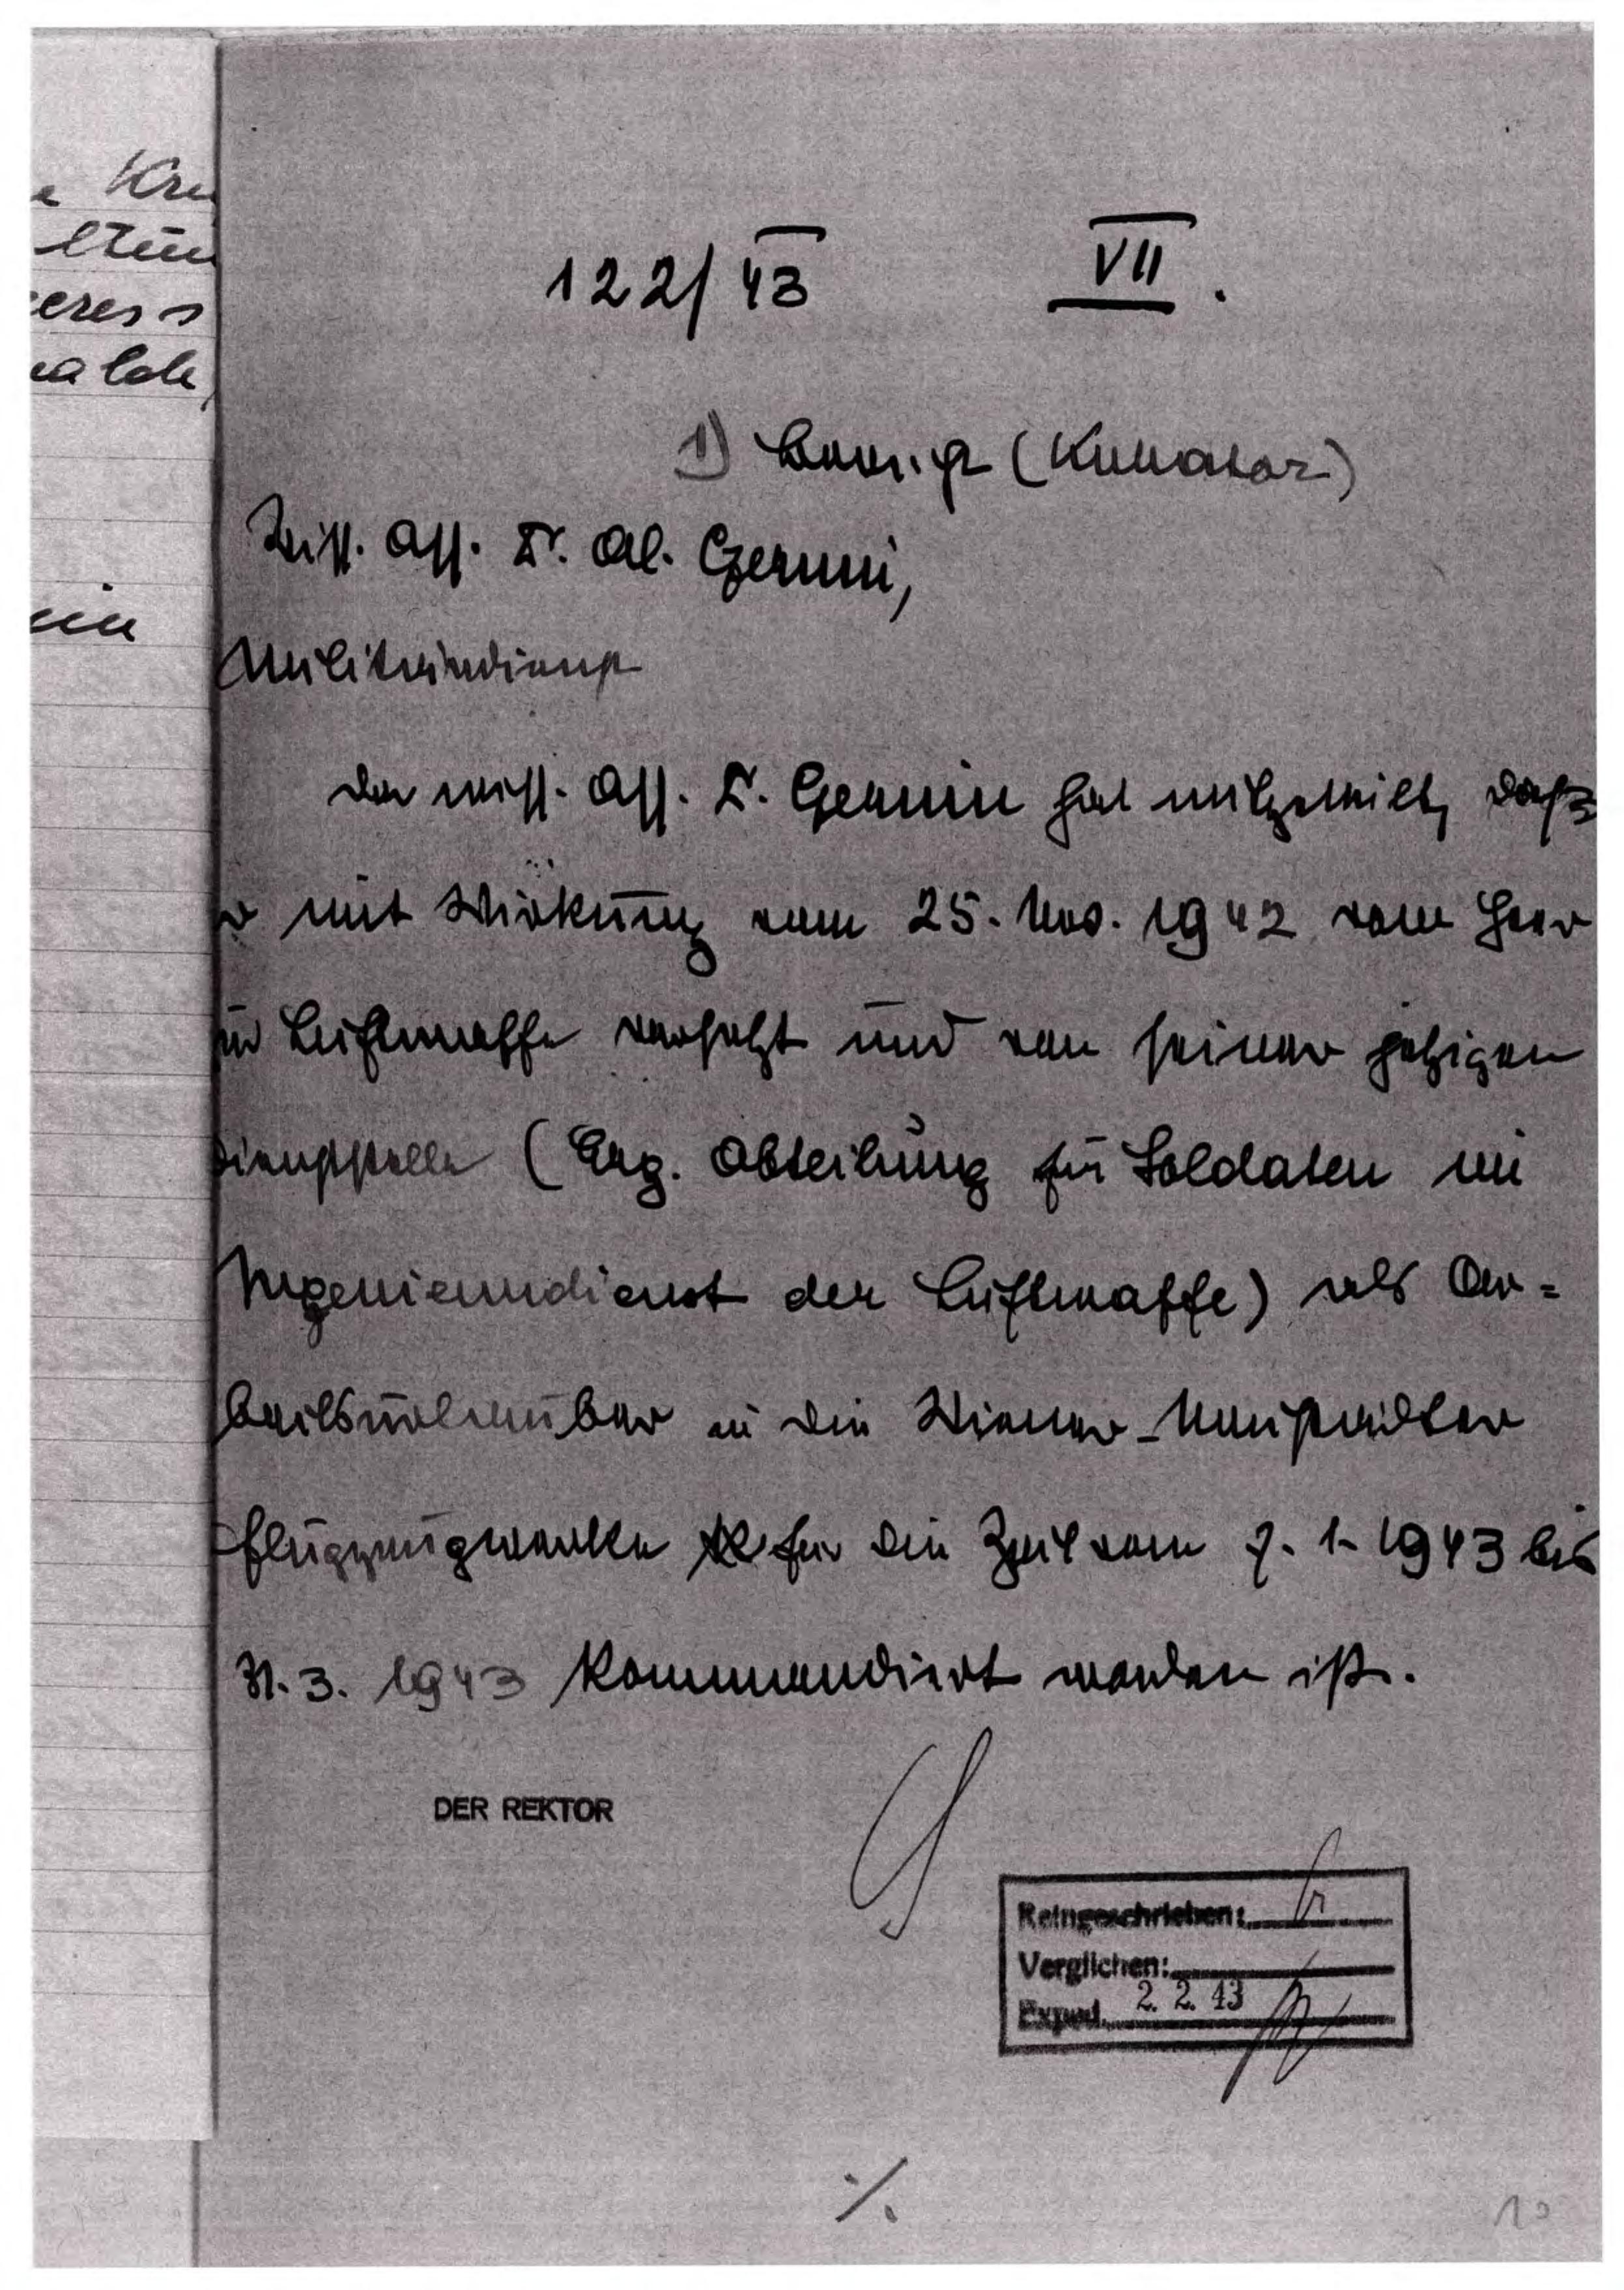 122/43 VII.
1) (Kurator)
Wiss. Ass. Dr. Al. Czernin,
Militärdienst
Der wiss. Ass. Dr. Czernin hat mitgeteilt, daß
er mit Wirkung vom 25. Nov. 1942 vom Heer
zur Luftwaffe versetzt und von seiner jetzigen
Dienststelle (Erg. Abteilung für Soldaten im
Ingenieurdienst der Luftwaffe) als Ar=
beitsurlauber in die Wiener-Neustädter
Flugzeugwerke für die Zeit vom 7. 1. 1943 bis
31. 3. 1943 kommandiert worden ist.
DER REKTOR
Reingeschrieben:
Verglichen:
Exped. 2. 2. 43
./.